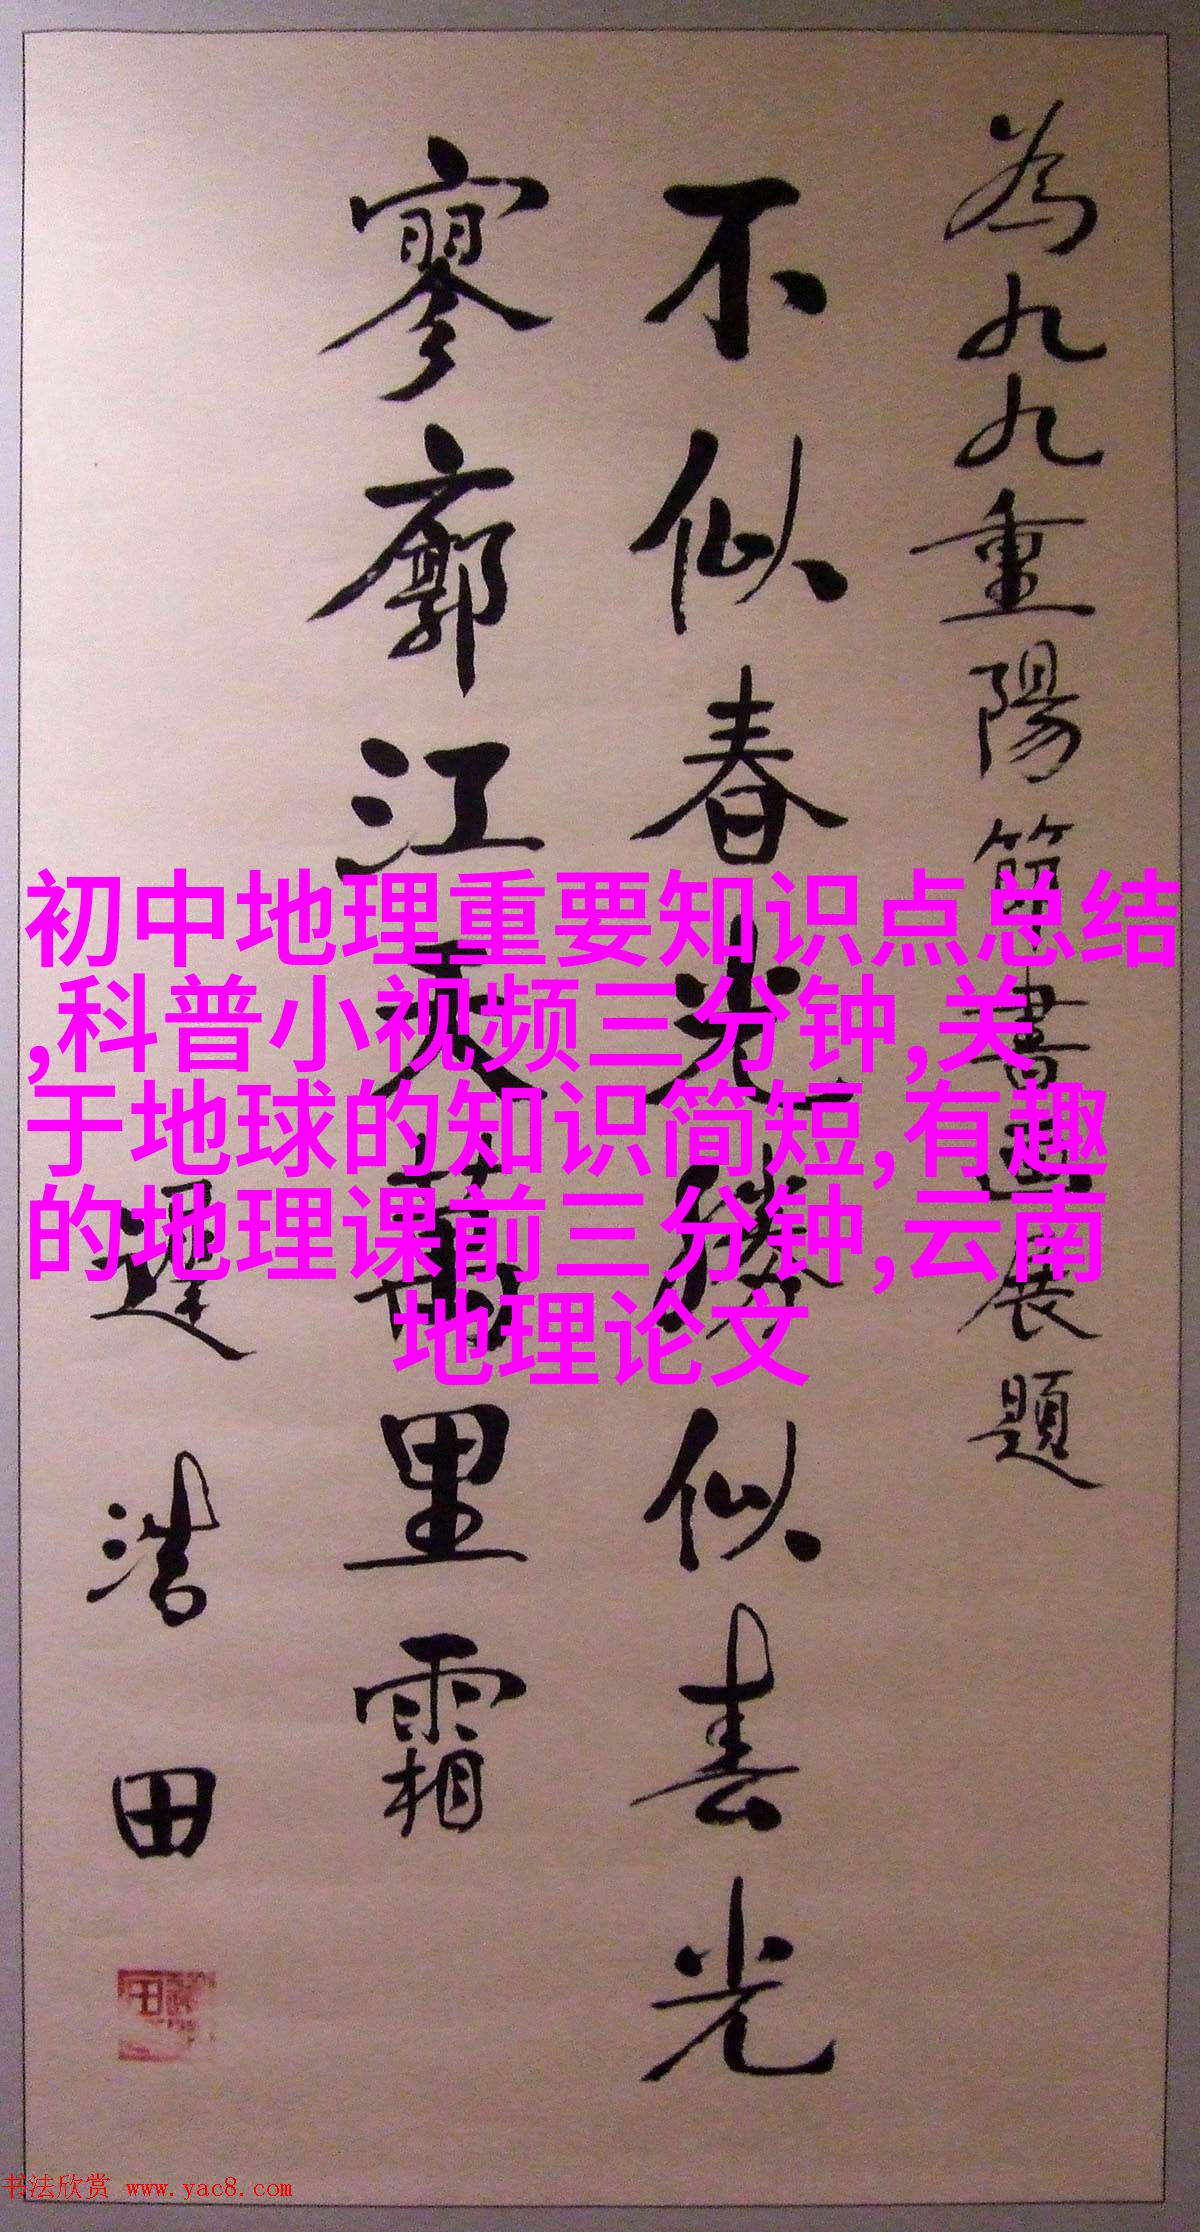 為九九重陽節書畫展題
不似春光勝似春光
寥廓江天萬里霜
遲浩田
初中地理重要知识点总结
,科普小视频三分钟,关
于地球的知识简短,有趣
的地理课前三分钟,云南
地理论文
书法欣赏 www.yac8.com